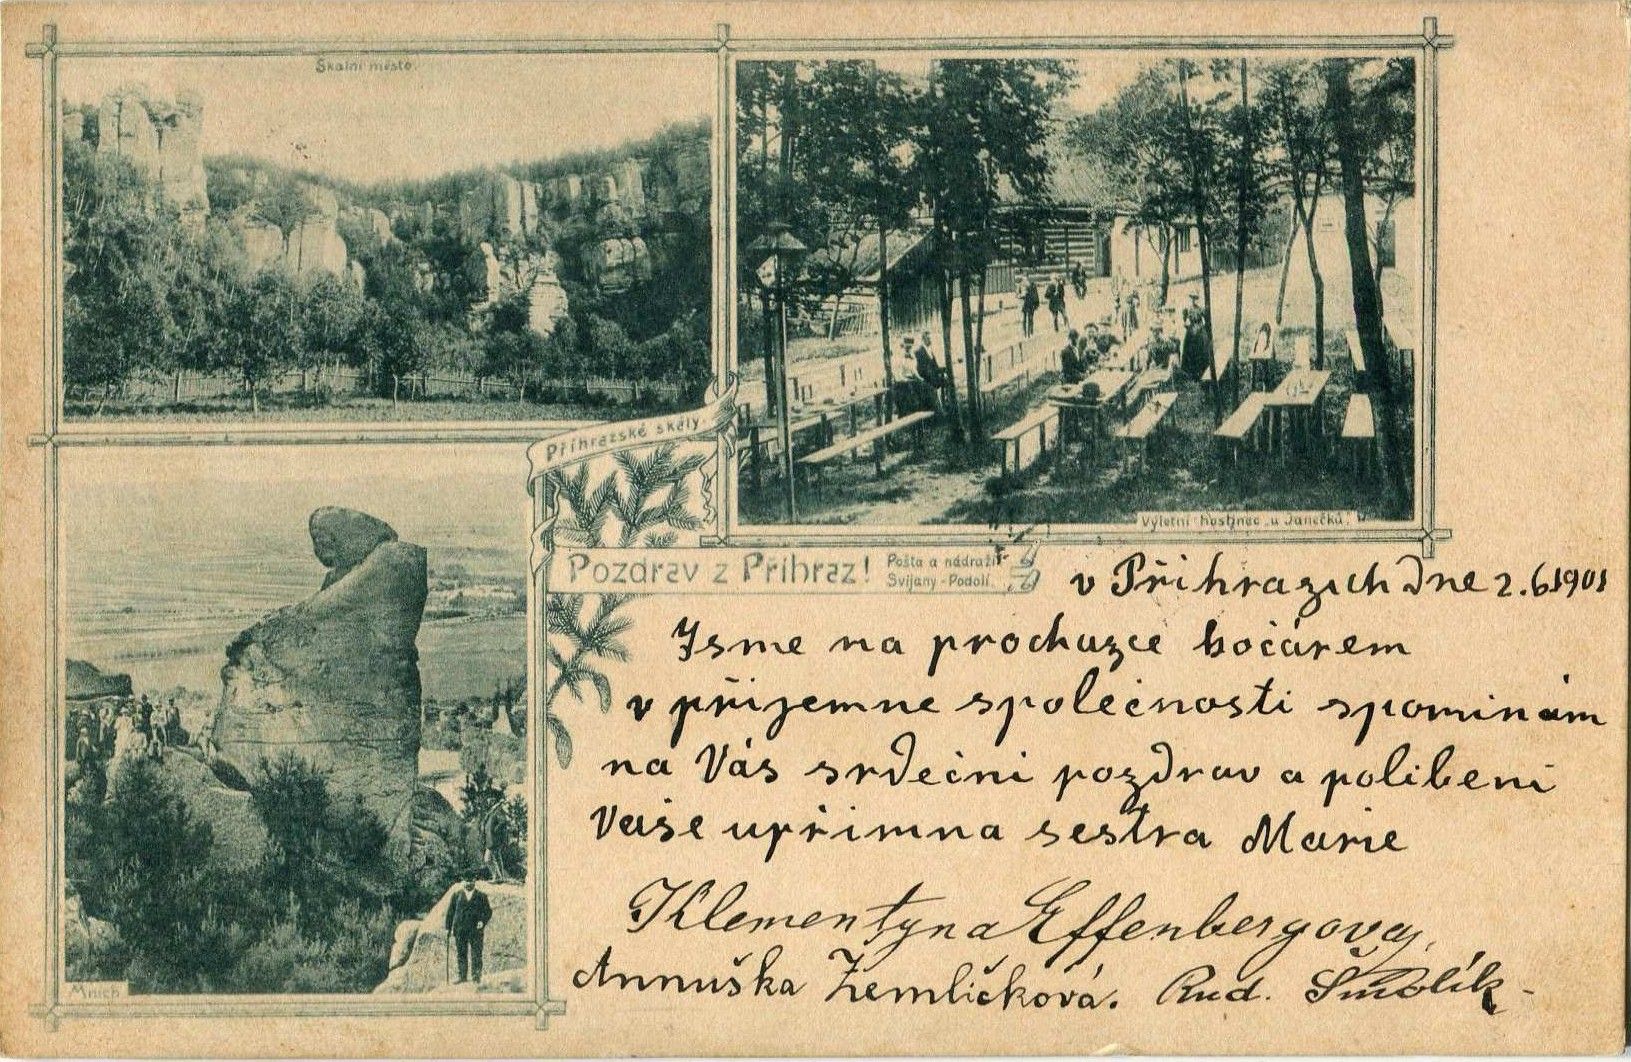 Skalní město.
Příhrazské skály.
Výletní hostinec „u Janečků."
Pozdrav z Příhraz!
Pošta a nádraží
Svijany-Podolí.
v Přihrazich dne 2.6 1901
Jsme na prochuzce kočárem
v přijemne společnosti spominám
na Vás srdečni pozdrav a polibeni
Vaše upřimna sestra Marie
Klementyna Effenbergova,
Annuška Žemličková. Rud. Šmolík
Mnich